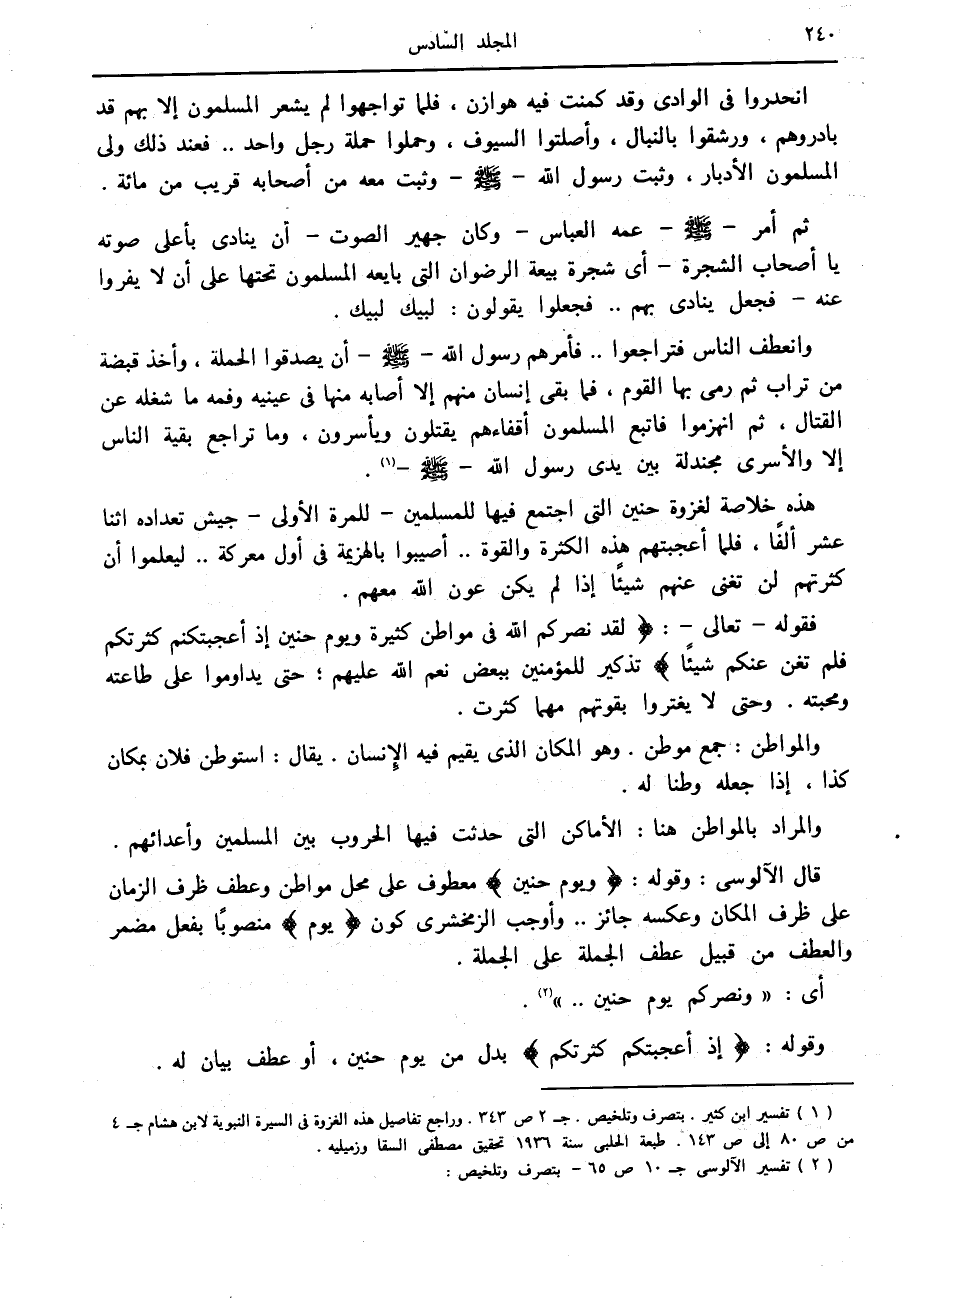 ٢٤٠
المجلد السّادس
انحدروا فى الوادى وقد كمنت فيه هوازن ، فلما تواجهوا لم يشعر المسلمون إلا بهم قد
بادروهم ، ورشقوا بالنبال ، وأصلتوا السيوف ، وحملوا حملة رجل واحد .. فعند ذلك ولى
المسلمون الأدبار ، وثبت رسول الله – ﷺ – وثبت معه من أصحابه قريب من مائة .
ثم أمر – ﷺ – عمه العباس – وكان جهير الصوت – أن ينادى بأعلى صوته
يا أصحاب الشجرة – أى شجرة بيعة الرضوان التى بايعه المسلمون تحتها على أن لا يفروا
عنه – فجعل ينادى بهم .. فجعلوا يقولون : لبيك لبيك .
وانعطف الناس فتراجعوا .. فأمرهم رسول الله – ﷺ – أن يصدقوا الحملة ، وأخذ قبضة
من تراب ثم رمى بها القوم ، فما بقى إنسان منهم إلا أصابه منها فى عينيه وفمه ما شغله عن
القتال ، ثم انهزموا فاتبع المسلمون أقفاءهم يقتلون ويأسرون ، وما تراجع بقية الناس
إلا والأسرى مجندلة بين يدى رسول الله – ﷺ –(١) .
هذه خلاصة لغزوة حنين التى اجتمع فيها للمسلمين – للمرة الأولى – جيش تعداده اثنا
عشر ألفًا ، فلما أعجبتهم هذه الكثرة والقوة .. أصيبوا بالهزيمة فى أول معركة .. ليعلموا أن
كثرتهم لن تغنى عنهم شيئًا إذا لم يكن عون الله معهم .
فقوله – تعالى – : ﴿ لقد نصركم الله فى مواطن كثيرة ويوم حنين إذ أعجبتكنم كثرتكم
فلم تغن عنكم شيئًا ﴾ تذكير للمؤمنين ببعض نعم الله عليهم ؛ حتى يداوموا على طاعته
ومحبته . وحتى لا يغتروا بقوتهم مهما كثرت .
والمواطن : جمع موطن . وهو المكان الذى يقيم فيه الإنسان . يقال : استوطن فلان بمكان
كذا ، إذا جعله وطنا له .
والمراد بالمواطن هنا : الأماكن التى حدثت فيها الحروب بين المسلمين وأعدائهم .
قال الآلوسى : وقوله : ﴿ ويوم حنين ﴾ معطوف على محل مواطن وعطف ظرف الزمان
على ظرف المكان وعكسه جائز .. وأوجب الزمخشرى كون ﴿ يوم ﴾ منصوبًا بفعل مضمر
والعطف من قبيل عطف الجملة على الجملة .
أى : « ونصركم يوم حنين .. »(٢) .
وقوله : ﴿ إذ أعجبتكم كثرتكم ﴾ بدل من يوم حنين ، أو عطف بيان له .
( ١ ) تفسير ابن كثير . بتصرف وتلخيص . جـ ٢ ص ٣٤٣ . وراجع تفاصيل هذه الغزوة فى السيرة النبوية لابن هشام جـ ٤
من ص ٨٠ إلى ص ١٤٣ . طبعة الحلبى سنة ١٩٣٦ تحقيق مصطفى السقا وزميليه .
( ٢ ) تفسير الآلوسى جـ ١٠ ص ٦٥ – بتصرف وتلخيص :